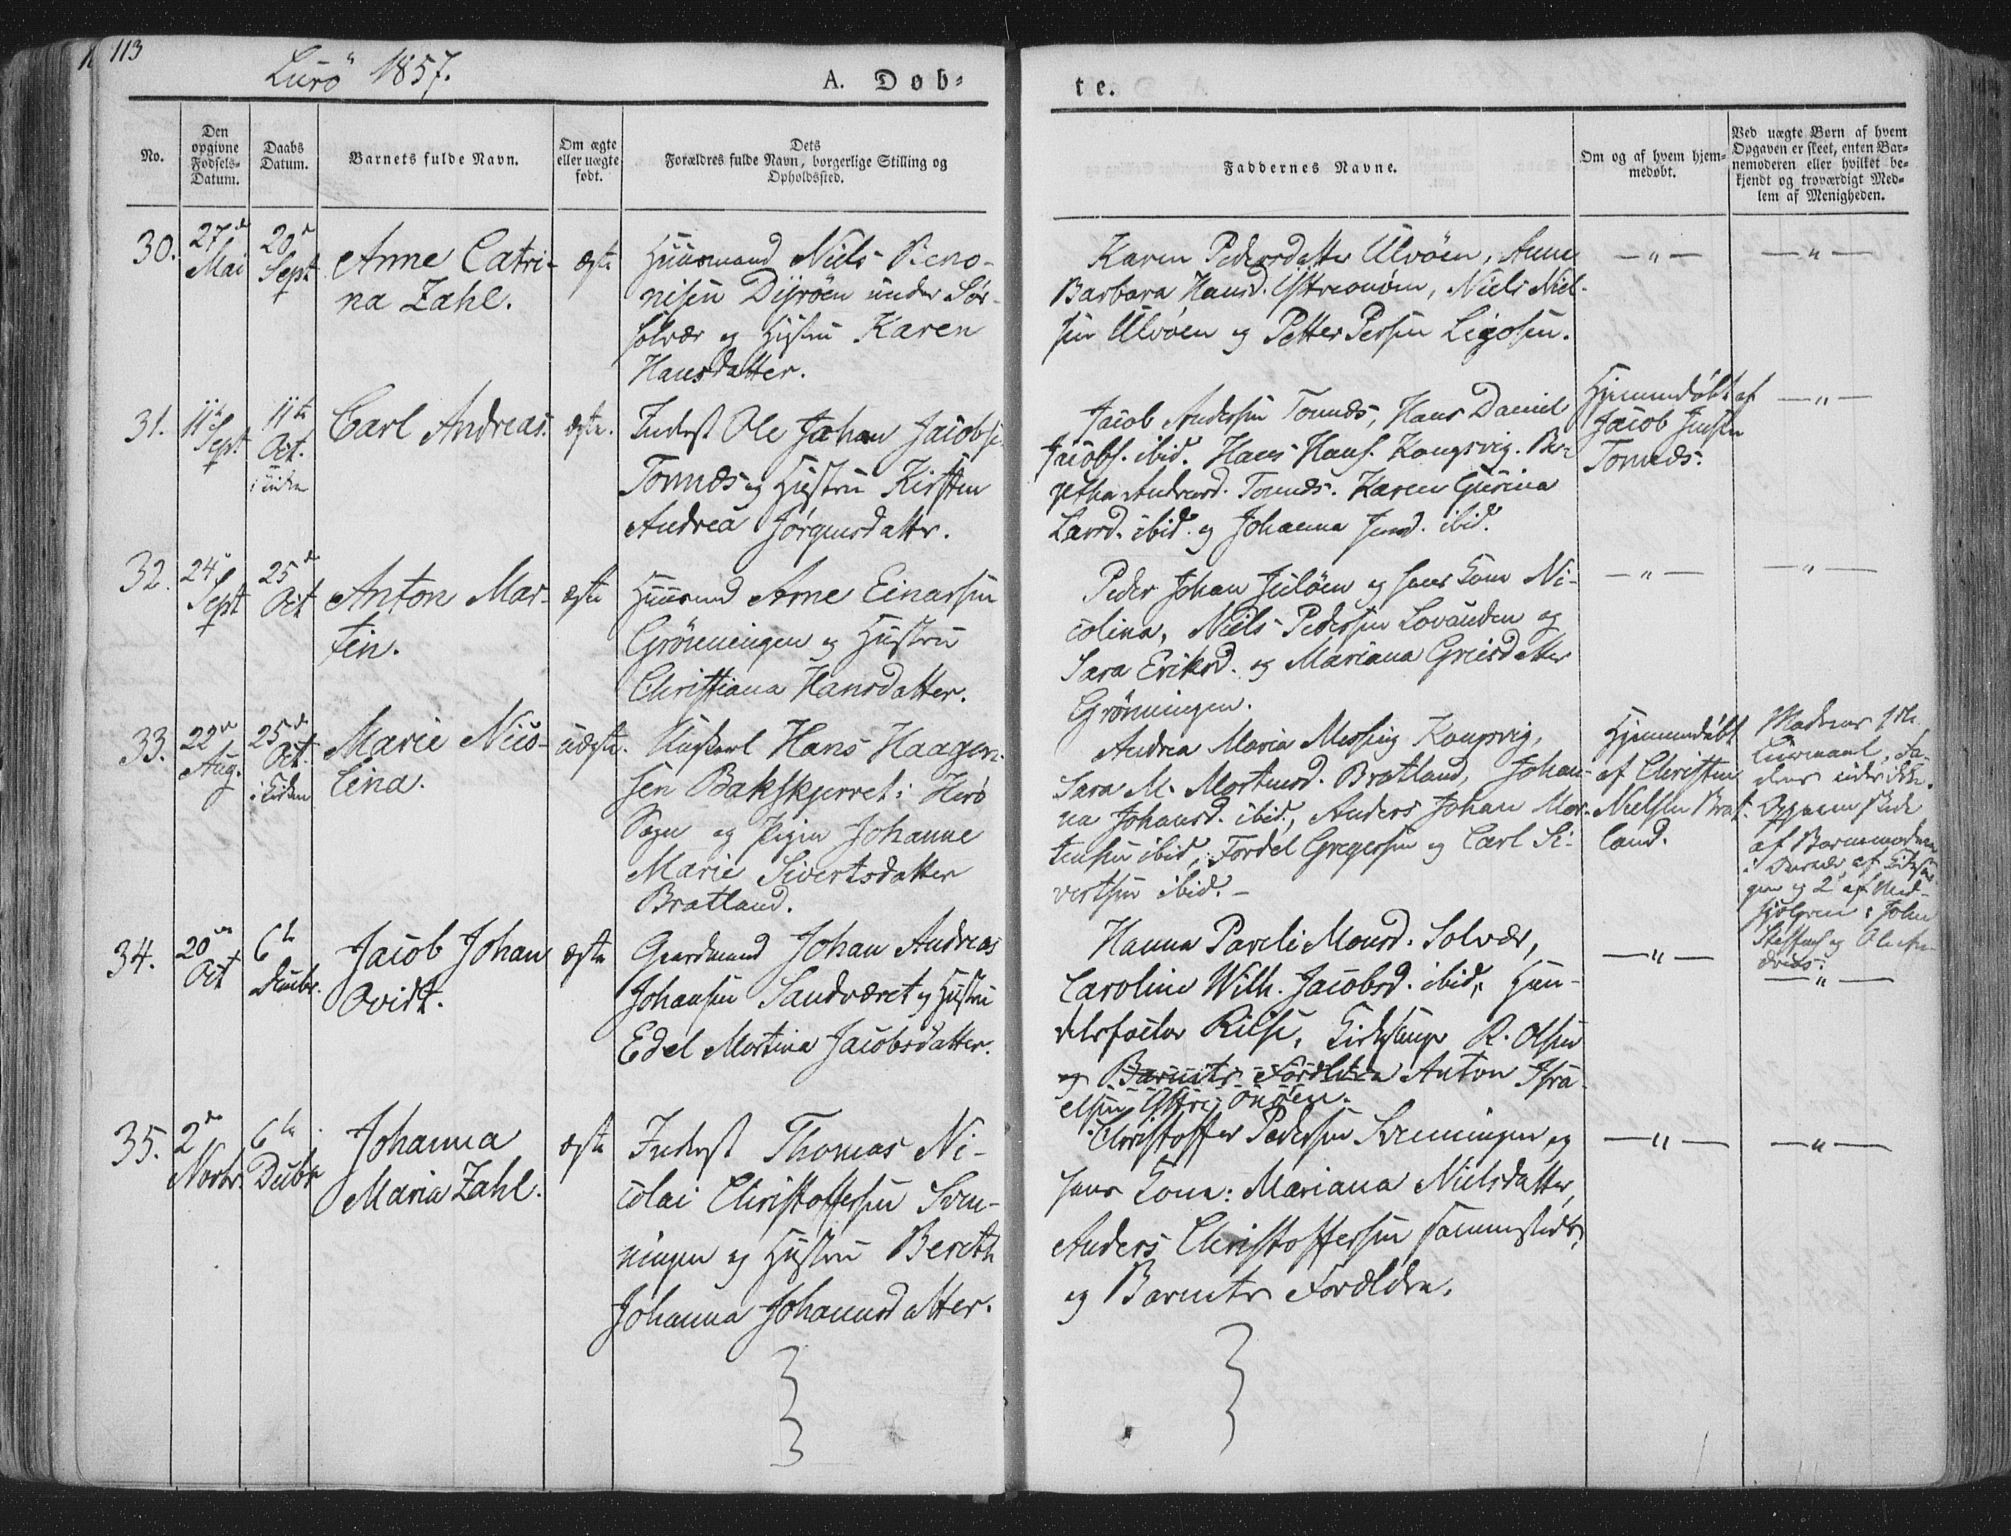 113
Lurö 1857.
A. Døb-
te.
No.
Den opgivne Fødsels-Datum.
Daabs Datum.
Barnets fulde Navn.
Om ægte eller uægte født.
Dets Forældres fulde Navn, borgerlige Stilling og Opholdssted.
Faddernes Navne.
Om og af hvem hjemmedøbt.
Ved uægte Børn af hvem Opgaven er skeet, enten Barnemoderen eller hvilket bekjendt og troværdigt Medlem af Menigheden.
30.
27de Mai
20de Sept
Anne Catri-
na Zahl.
ægte
Huusmand Niels Beno-
nisen Dijröen under Sör-
solvær og Hustru Karen
Hansdatter.
Karen Pedersdatter Ulvöen, Anne
Barbara Hansd. , Niels Niel-
sen Ulvöen og Petter Persen Ligosen.
— " —
— " —
31.
11te Sept.
11te Oct.
Carl Andreas.
ægte.
Inderst Ole Johan Jacobs.
Tonnæs og Hustru Kirsten
Andrea Jörgensdatter.
Jacob Andersen Tonnæs, Hans Daniel
Jacobs. ibid. Hans Hans. Kongsvig. Be-
retha Andersd. Tonnæs. Karen Gurina
Larsd. ibid. og Johanna Jensd. ibid.
Hjemmedöbt af
Jacob Jensen
Tonnæs.
— " —
32.
24 Sept
25de Oct
Anton Mar-
tin.
ægte
Huusmd Arne Einarsen
Grönningen og Hustru
Christiana Hansdatter.
Peder Johan Juløen og hans Kone Ni-
colina, Niels Pedersen Lovunden og
Sara Eriksd. og Mariana Greisdatter
Grönningen.
— " —
— " —
33.
22de Aug.
25de Oct.
i Kirken
Marie Nico-
lina.
uægte.
Ungkarl Hans Haagen-
sen Bakskjerret i Herö
Sogn og Pigen Johanne
Marie Sivertsdatter
Bratland.
Andrea Maria Messing Kongsvig,
Sara M. Mortensd. Bratland, Johan-
na Johansd. ibid., Anders Johan Mor-
tensen ibid, Tordel Gregersen og Carl Si-
vertsen ibid. –
Hjemmedöbt
af Christen
Nielsen Brat-
land.
Moderens 1ste
Leiermaal, Fa-
derens vides ikke.
Opgaven skede
af Barnemoderen
i Nærvær af Kirkesan-
geren og 2 af Med-
hjelperne: John
Steffens. og Ole An-
dreas.
34.
20de Oct
6te
Jacob Johan
Ovidt.
ægte
Gaardmand Johan Andreas
Johansen Sandværet og Hustru
Edel Martina Jacobsdatter.
Hanna Pareli Monsd. Solvær,
Caroline Wilh. Jacobsd. ibid., Han-
delsfactor Riise, Kirkesanger R. Olsen
og Barnets Forældre Anton Isra-
elsen
— " —
— " —
35.
2de Novbr.
6te Decbr
Johanna
Maria Zahl.
ægte
Inderst Thomas Ni-
colai Christoffersen Sven-
ningen og Hustru Bereth
Johanna Johannesdatter.
Christoffer Pedersen Svenningen og
hans Kone: Mariana Nielsdatter,
Anders Christoffersen sammesteds,
og Barnets Forældre.
— " —
— " —